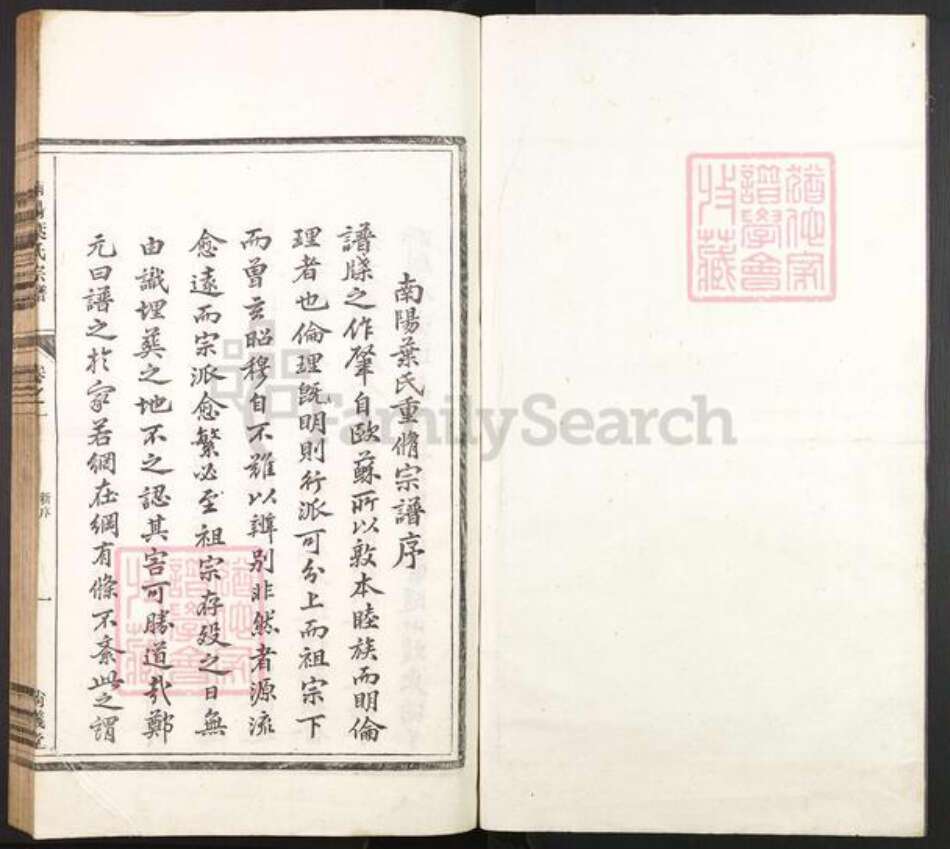 南陽葉氏重脩宗譜序
譜牒之作肇自歐蘇所以敦本睦族而明倫
理者也倫理既明則行派可分上而祖宗下
而曾玄昭穆自不難以辨别非然者源流
愈遠而宗派愈繁必至祖宗存殁之日無
由識埋葬之地不之認其害可勝道哉鄭
元曰譜之於家若網在綱有條不紊此之謂
南陽葉氏宗譜
卷之一
新序
一
譜學會
收藏
FamilySearch